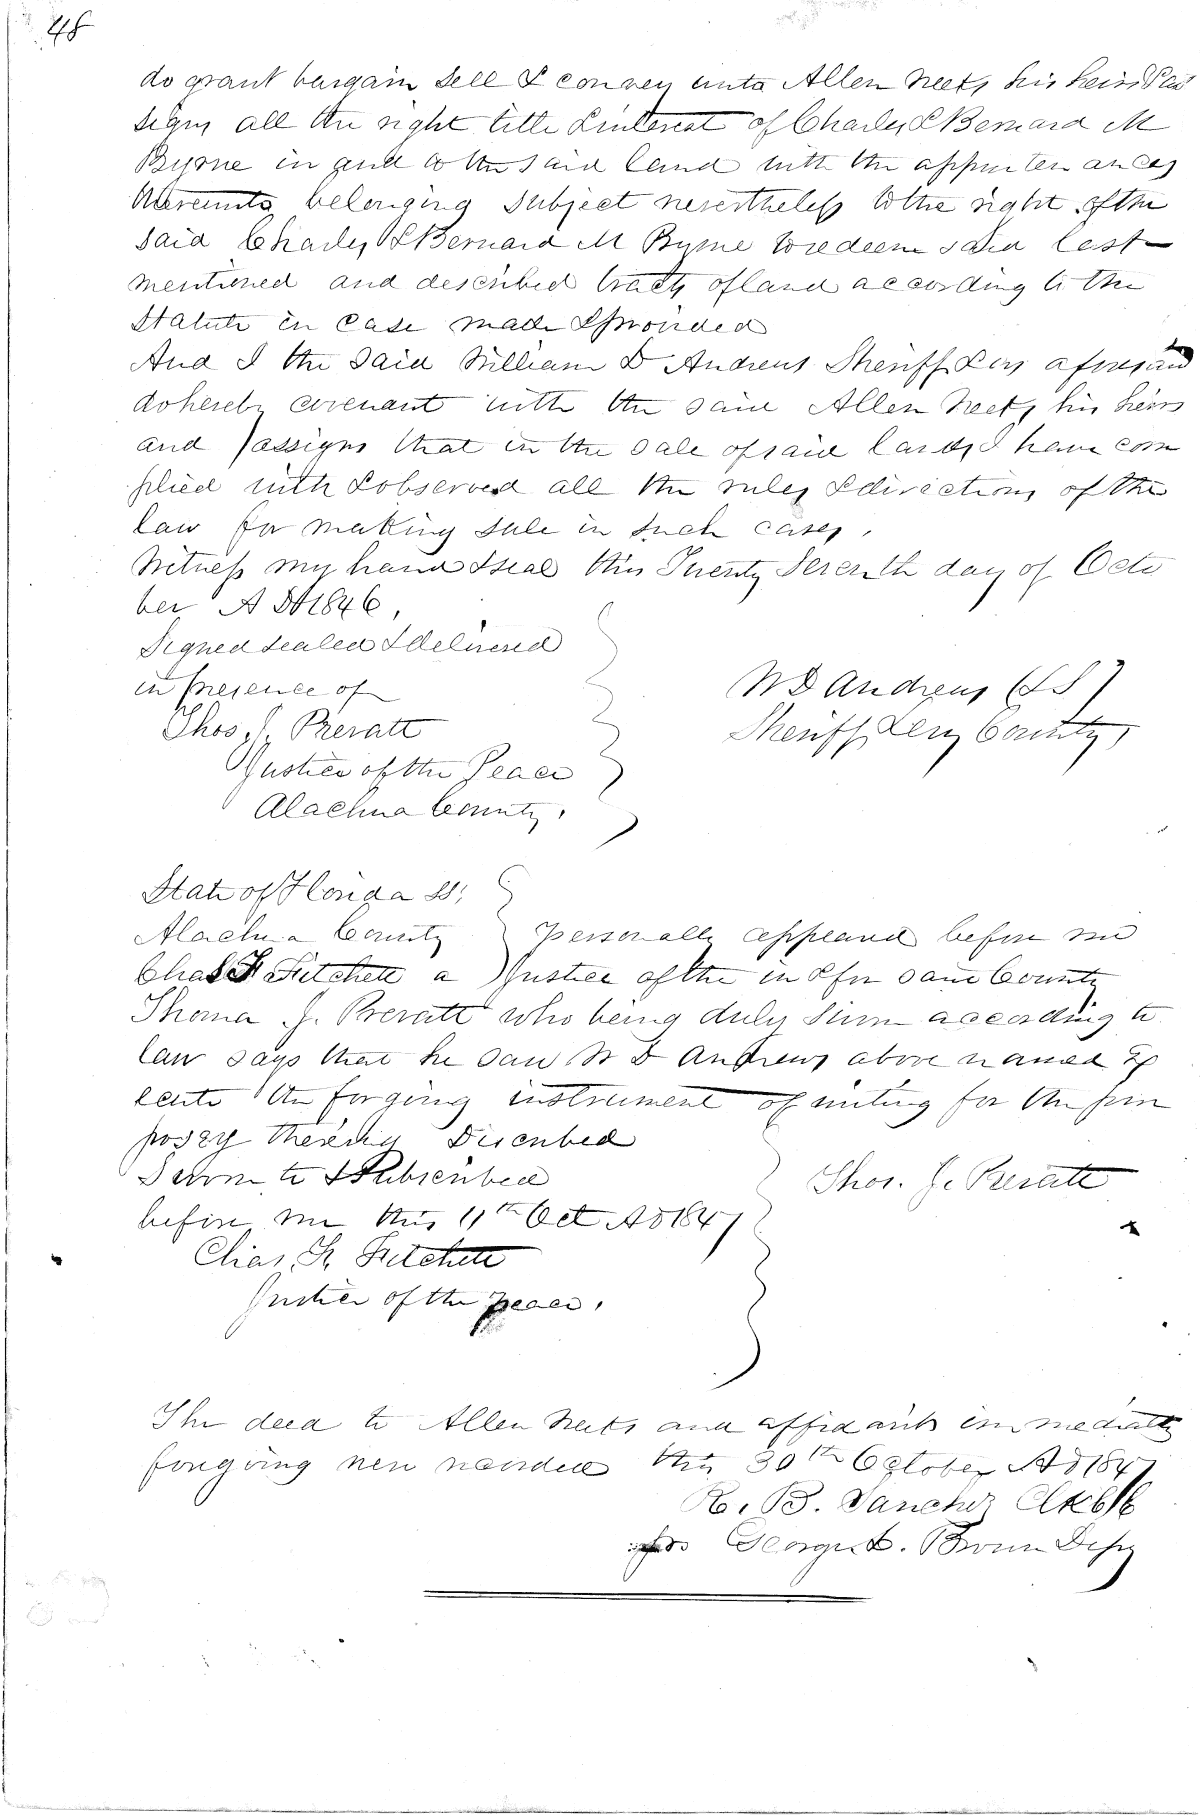 48
do grant bargain sell & convey unto Allen Neets his heirs & as
signs all the right title & interest of Charles & Bernard M
Byrne in and to the said land with the appurten ances
thereunto belonging subject nevertheless to the right of the
said Charles & Bernard M Byrne to redeem said last
mentioned and described tracts of land according to the
Statute in case made & provided
And I the said William D Andrews Sheriff &c as aforesaid
do hereby covenant with the said Allen Neets his heirs
and assigns that in the sale of said lands I have com
plied with & observed all the rules & directions of the
law for making sale in such cases.
Witness my hand & seal this Twenty Seventh day of Octo
ber A D 1846,
Signed sealed & delivered
in presence of
W D Andrews (LS)
Thos. J. Prevatt
Sheriff Levy County,
Justice of the Peace
Alachua County.
State of Florida SS;
Alachua County personally appeard before me
Chas F Fitchett a Justice of the in & for said County
Thoma J. Prevatt who being duly sworn according to
law says that he saw W D Andrews above named Ex
ecute the forgoing instrument of writing for the pur
poses therein Discribed
Sworn to & Subscribed
Thos. J. Prevatt
before me this 11th Oct AD 1847
Chas. F. Fitchett
Justice of the peace.
The deed to Allen Neets and affidavit immediatly
forgoing were recorded this 30th October AD 1847
R. B. Sanchez Clk CC
pr George L. Brown Depy